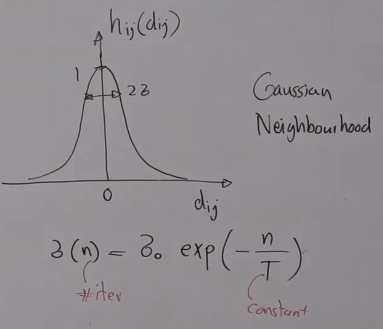 h_ij(d_ij)
1
2σ
Gaussian
Neighbourhood
0
d_ij
σ(n) = σ₀ exp(-n/T)
#iter
constant